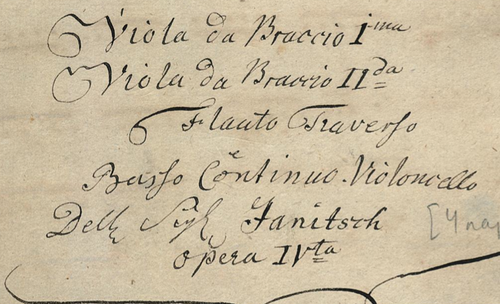 Viola da Braccio I^ma
Viola da Braccio II^da
Flauto Traverso
Basso Continuo. Violoncello
Dell Sig^r Janitsch
opera IV^ta